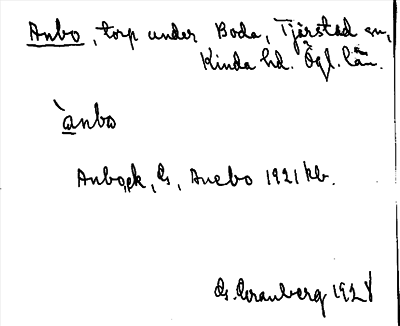 Anbo, torp under Boda, Tjärstad sn,
Kinda hd. Ögl. län.
ànbo
Anbo, ek, G, Anebo 1921 kb.
G. Granberg 1928